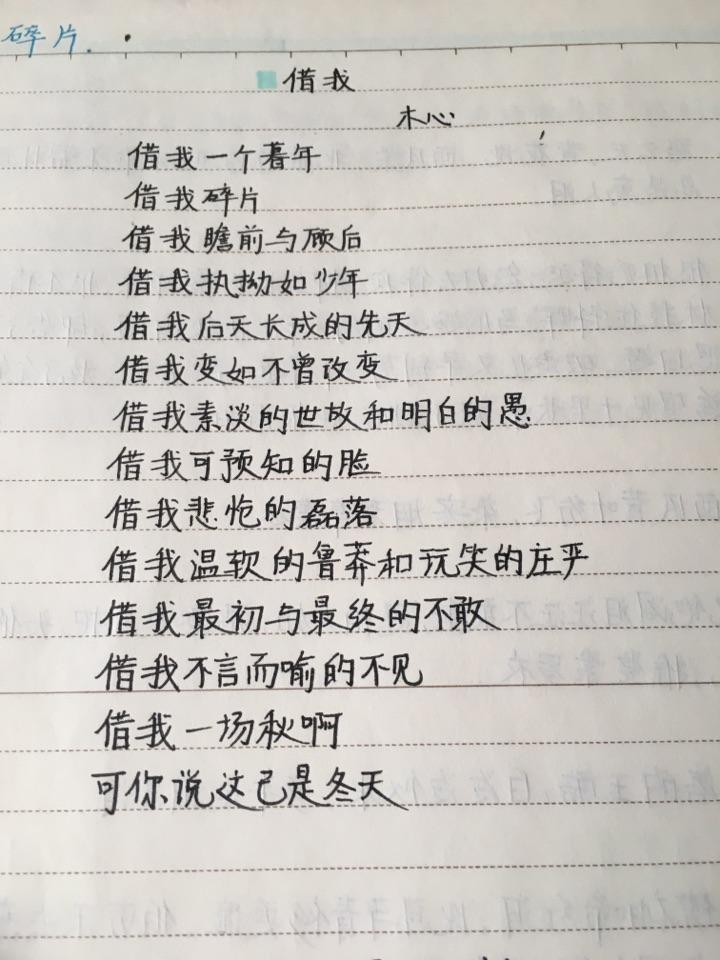 碎片.
借我
木心
借我一个暮年
借我碎片
借我瞻前与顾后
借我执拗如少年
借我后天长成的先天
借我变如不曾改变
借我素淡的世故和明白的愚
借我可预知的脸
借我悲怆的磊落
借我温软的鲁莽和玩笑的庄严
借我最初与最终的不敢
借我不言而喻的不见
借我一场秋啊
可你说这已是冬天